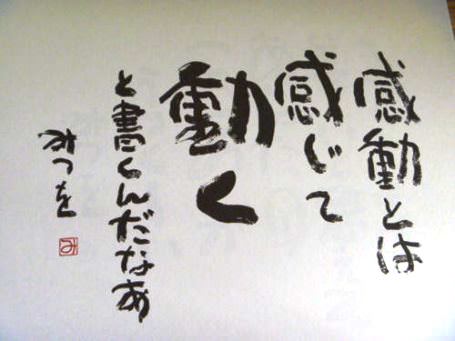 感動とは
感じて
動く
と書くんだなあ
みつを
み